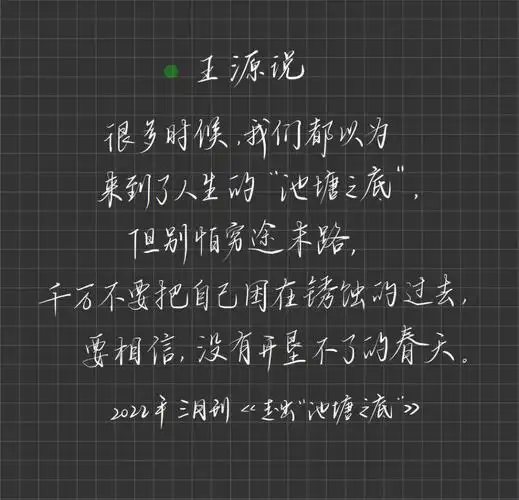 王源说
很多时候,我们都以为
来到了人生的“池塘之底”,
但别怕穷途末路,
千万不要把自己困在锈蚀的过去,
要相信,没有开垦不了的春天。
2022年三月刊《走出“池塘之底”》